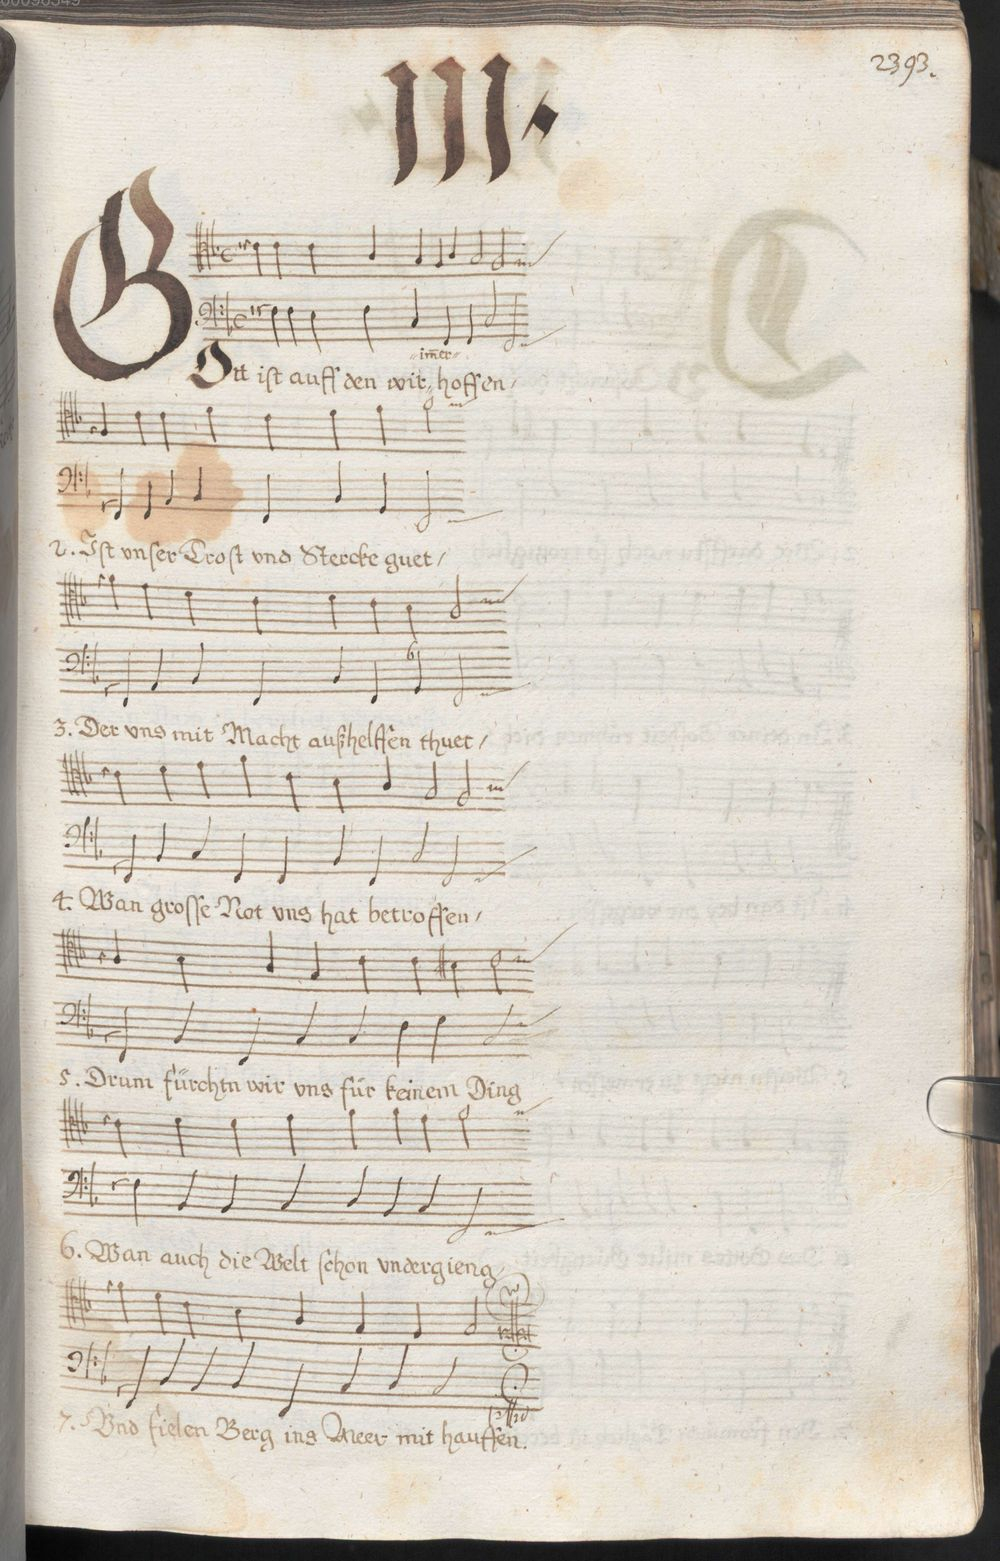 2393.
III.
GOtt ist auff den wir im̃er hoffen/
2. Ist vnser Trost vnd Stercke guet/
3. Der vns mit Macht außhelffen thuet/
4. Wan grosse Not vns hat betroffen/
5. Drum fürchtn wir vns für keinem Ding
6. Wan auch die Welt schon vndergieng/
7. Vnd fielen Berg ins Meer mit hauffen.